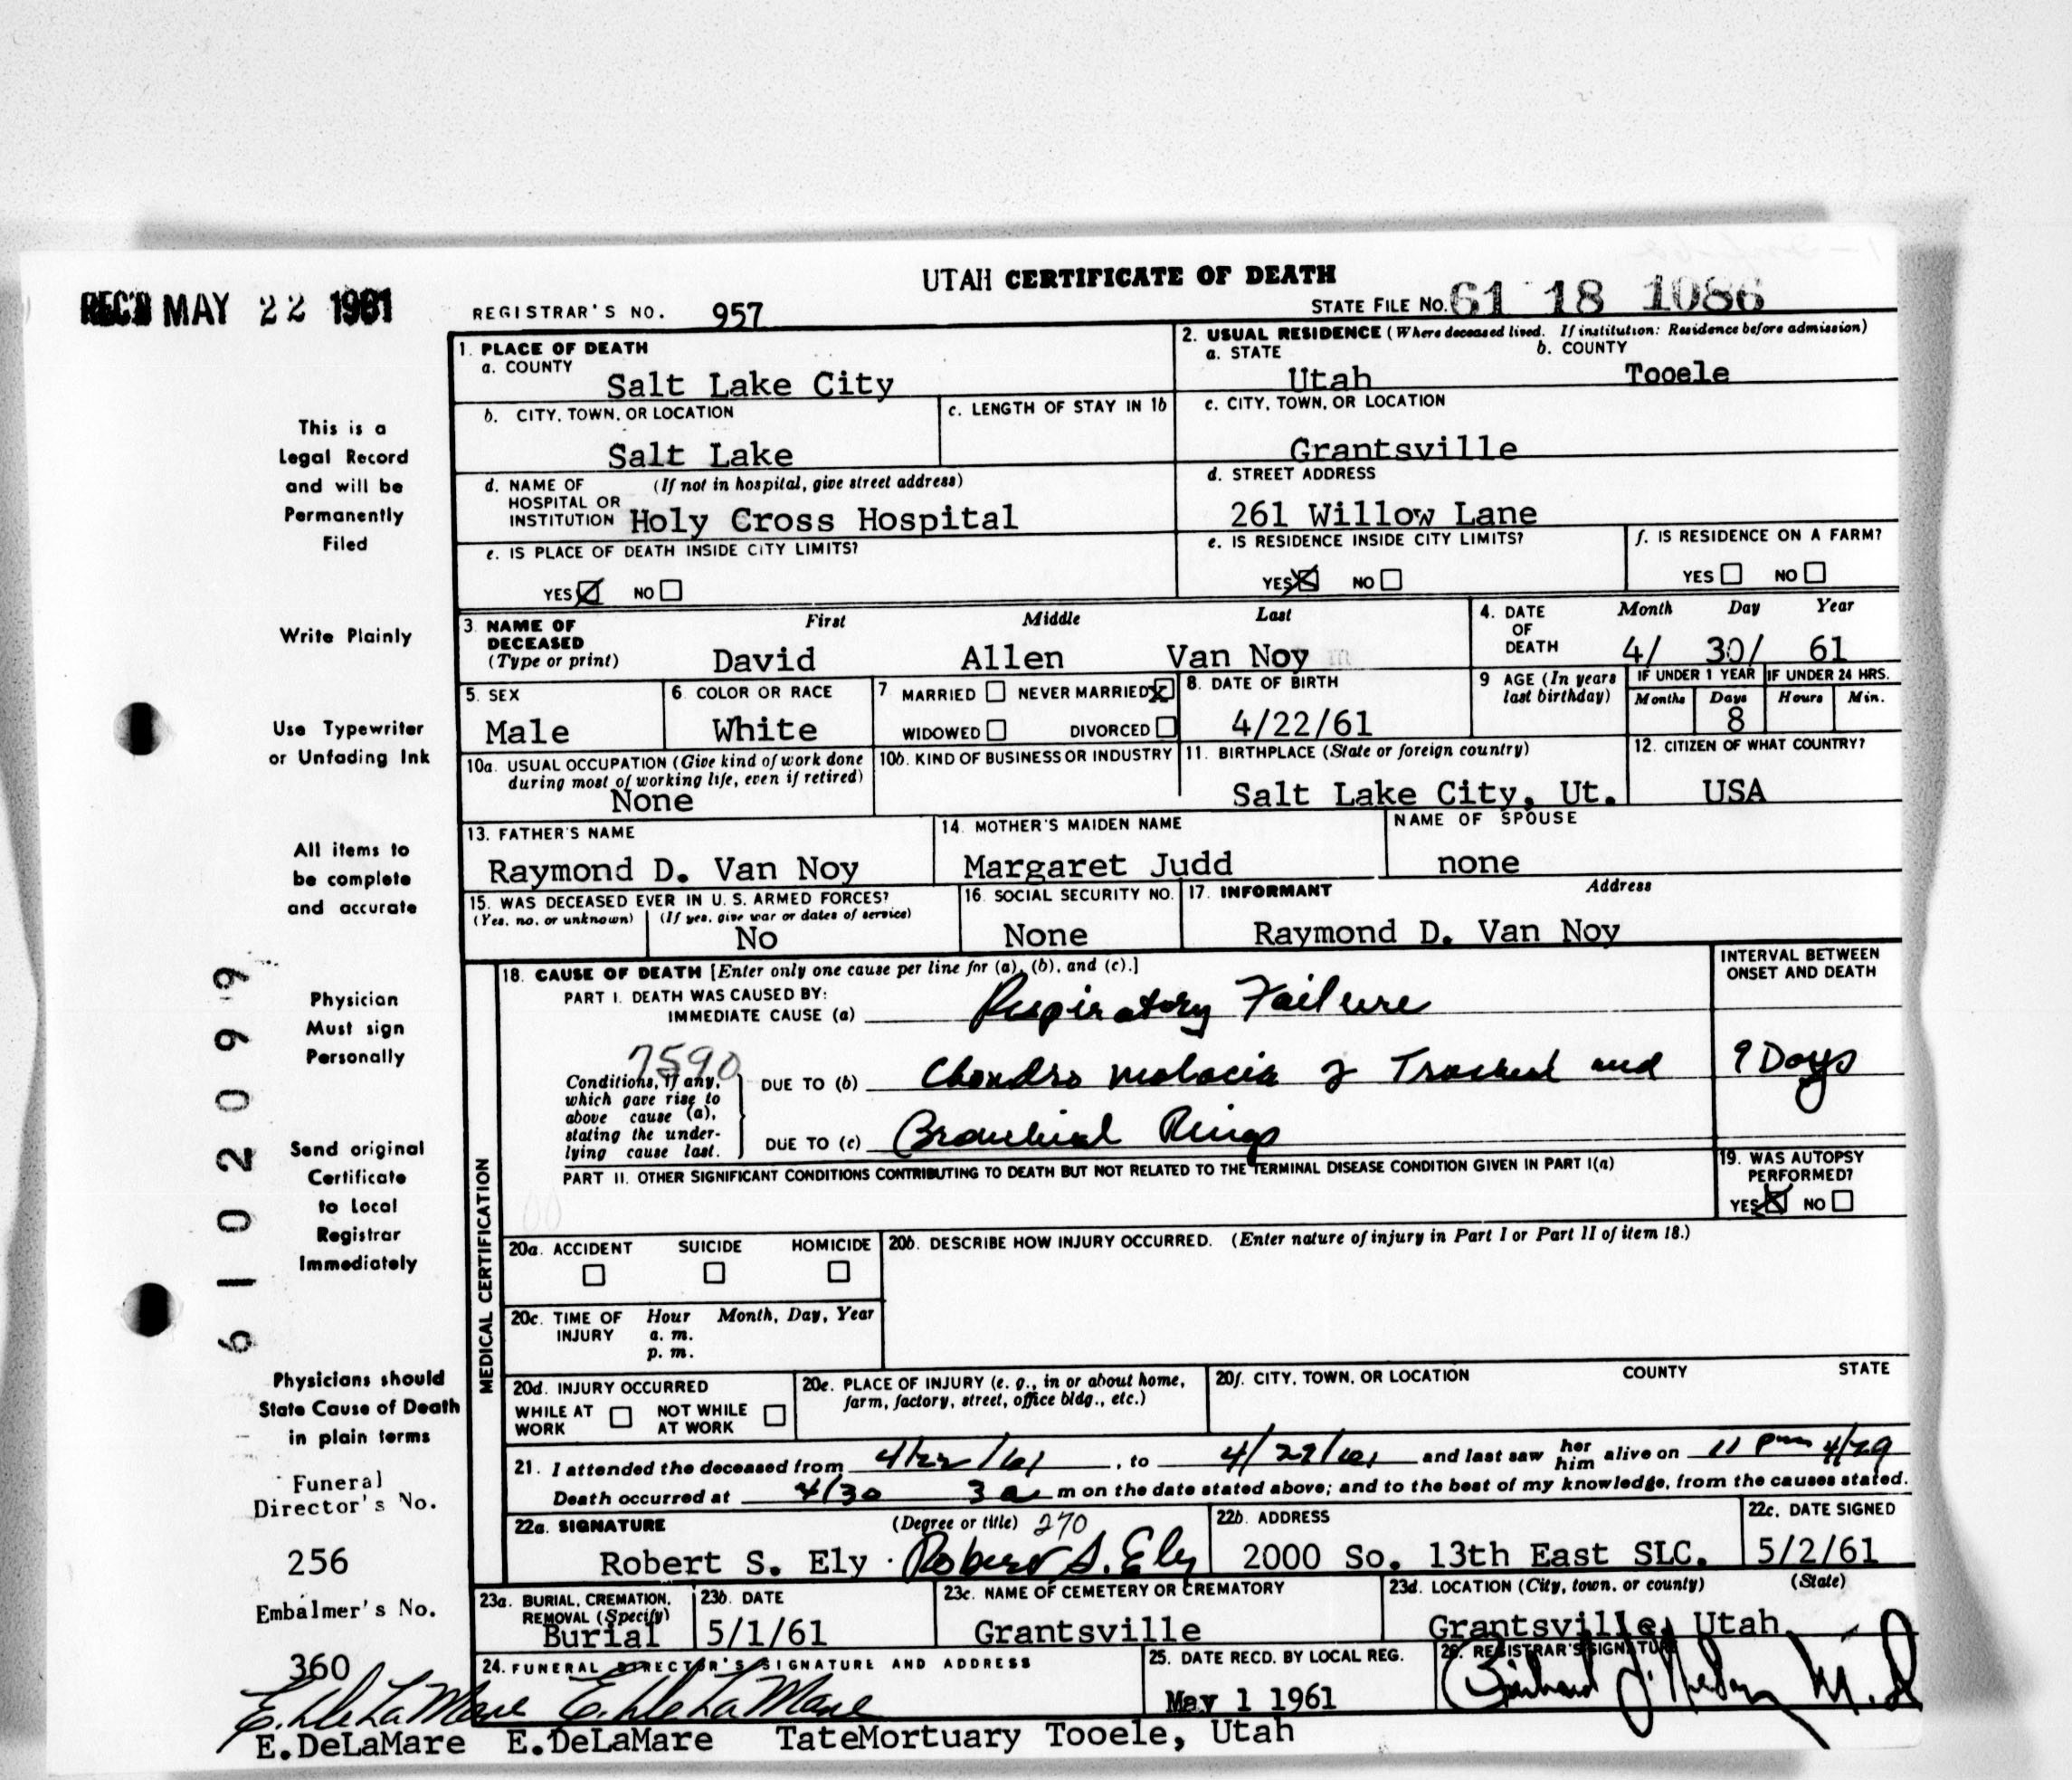 UTAH CERTIFICATE OF DEATH
REC'D MAY 22 1961
REGISTRAR'S NO. 957
STATE FILE NO. 61 18 1086
1. PLACE OF DEATH
a. COUNTY
Salt Lake City
2. USUAL RESIDENCE (Where deceased lived. If institution: Residence before admission)
a. STATE b. COUNTY
Utah Tooele
b. CITY, TOWN, OR LOCATION
Salt Lake
c. LENGTH OF STAY IN 1b
c. CITY, TOWN, OR LOCATION
Grantsville
d. NAME OF (If not in hospital, give street address)
HOSPITAL OR
INSTITUTION Holy Cross Hospital
d. STREET ADDRESS
261 Willow Lane
e. IS PLACE OF DEATH INSIDE CITY LIMITS?
YES NO
e. IS RESIDENCE INSIDE CITY LIMITS?
YES NO
f. IS RESIDENCE ON A FARM?
YES NO
3. NAME OF DECEASED (Type or print)
First Middle Last
David Allen Van Noy
4. DATE OF DEATH
Month Day Year
4/ 30/ 61
5. SEX
Male
6. COLOR OR RACE
White
7. MARRIED NEVER MARRIED
WIDOWED DIVORCED
8. DATE OF BIRTH
4/22/61
9 AGE (In years last birthday)
IF UNDER 1 YEAR IF UNDER 24 HRS.
Months Days Hours Min.
8
10a. USUAL OCCUPATION (Give kind of work done
during most of working life, even if retired)
None
10b. KIND OF BUSINESS OR INDUSTRY
11. BIRTHPLACE (State or foreign country)
Salt Lake City, Ut.
12. CITIZEN OF WHAT COUNTRY?
USA
13. FATHER'S NAME
Raymond D. Van Noy
14. MOTHER'S MAIDEN NAME
Margaret Judd
NAME OF SPOUSE
none
15. WAS DECEASED EVER IN U. S. ARMED FORCES?
(Yes, no, or unknown) (If yes, give war or dates of service)
No
16. SOCIAL SECURITY NO.
None
17. INFORMANT Address
Raymond D. Van Noy
MEDICAL CERTIFICATION
18. CAUSE OF DEATH [Enter only one cause per line for (a), (b), and (c).]
INTERVAL BETWEEN
ONSET AND DEATH
PART I. DEATH WAS CAUSED BY:
IMMEDIATE CAUSE (a) Respiratory Failure
7590
Conditions, if any,
which gave rise to
above cause (a),
stating the under-
lying cause last.
DUE TO (b) Chondro malacia of Tracheal and
9 Days
DUE TO (c) Bronchial Rings
PART II. OTHER SIGNIFICANT CONDITIONS CONTRIBUTING TO DEATH BUT NOT RELATED TO THE TERMINAL DISEASE CONDITION GIVEN IN PART I(a)
00
19. WAS AUTOPSY
PERFORMED?
YES NO
20a. ACCIDENT SUICIDE HOMICIDE
20b. DESCRIBE HOW INJURY OCCURRED. (Enter nature of injury in Part I or Part II of item 18.)
20c. TIME OF INJURY
Hour Month, Day, Year
a. m.
p. m.
20d. INJURY OCCURRED
WHILE AT WORK NOT WHILE AT WORK
20e. PLACE OF INJURY (e. g., in or about home,
farm, factory, street, office bldg., etc.)
20f. CITY, TOWN, OR LOCATION COUNTY STATE
21. I attended the deceased from 4/22/61, to 4/29/61 and last saw her him alive on 11 pm 4/29
Death occurred at 4/30 3 a m on the date stated above; and to the best of my knowledge, from the causes stated.
22a. SIGNATURE (Degree or title) 270
Robert S. Ely Robert S. Ely
22b. ADDRESS
2000 So. 13th East SLC.
22c. DATE SIGNED
5/2/61
23a. BURIAL, CREMATION,
REMOVAL (Specify)
Burial
23b. DATE
5/1/61
23c. NAME OF CEMETERY OR CREMATORY
Grantsville
23d. LOCATION (City, town, or county) (State)
Grantsville, Utah
24. FUNERAL DIRECTOR'S SIGNATURE AND ADDRESS
E. DeLaMare E. DeLaMare
E.DeLaMare E.DeLaMare TateMortuary Tooele, Utah
25. DATE RECD. BY LOCAL REG.
May 1 1961
26. REGISTRAR'S SIGNATURE
This is a
Legal Record
and will be
Permanently
Filed
Write Plainly
Use Typewriter
or Unfading Ink
All items to
be complete
and accurate
Physician
Must sign
Personally
Send original
Certificate
to Local
Registrar
Immediately
Physicians should
State Cause of Death
in plain terms
Funeral
Director's No.
256
Embalmer's No.
360
6102099